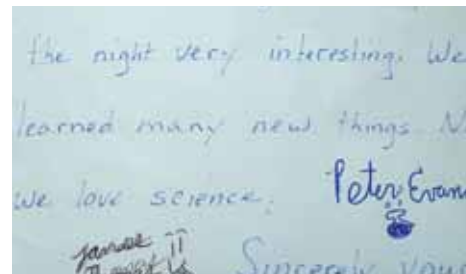 the night very interesting. We
learned many new things. N
we love science.
Peter Evan
Sincerely your